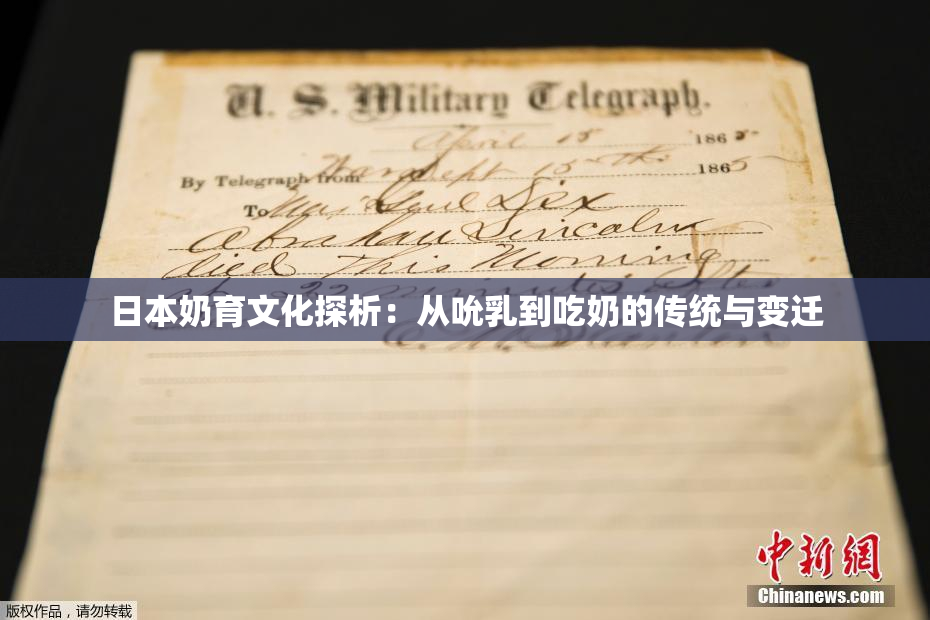 U. S. Military Telegraph.
April 15 1865
By Telegraph from War Dept 15th 1865
To Maj Genl Dix
Abraham Lincoln
died This Morning
at 22 minutes after
日本奶育文化探析：从吮乳到吃奶的传统与变迁
E. M. Stanton
中新网
Chinanews.com
版权作品，请勿转载